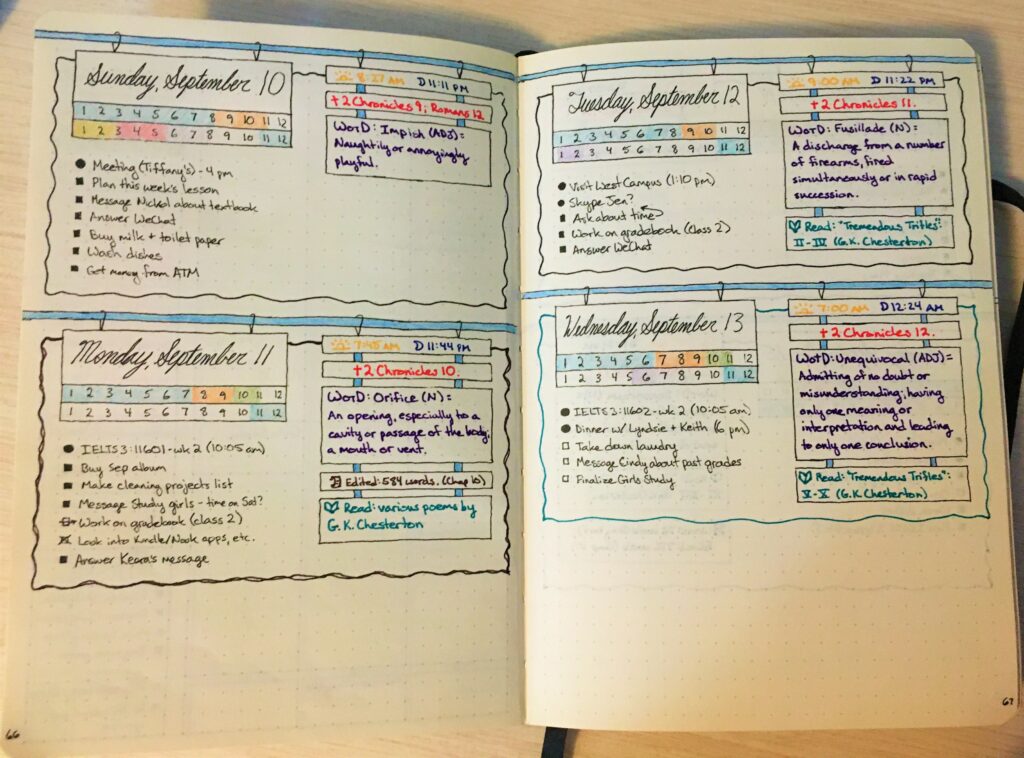 Sunday, September 10
1 2 3 4 5 6 7 8 9 10 11 12
1 2 3 4 5 6 7 8 9 10 11 12
Meeting (Tiffany's) - 4 pm
Plan this week's lesson
Message Nickol about textbook
Answer WeChat
Buy milk + toilet paper
Wash dishes
Get money from ATM
8:27 AM D 11:11 PM
+2 Chronicles 9; Romans 12
WotD: Impish (ADJ)=
Naughtily or annoyingly
playful.
Monday, September 11
1 2 3 4 5 6 7 8 9 10 11 12
1 2 3 4 5 6 7 8 9 10 11 12
IELTS 3: 11601 - wk 2 (10:05 am)
Buy Sep album
Make cleaning projects list
Message Study girls - time on Sat?
Work on gradebook (class 2)
Look into Kindle/Nook apps, etc.
Answer Keara's message
7:45 AM D 11:44 PM
+2 Chronicles 10.
WotD: Orifice (N)=
An opening, especially to a
cavity or passage of the body;
a mouth or vent.
Edited: 584 words. (Chap 10)
Read: various poems by
G.K. Chesterton
66
Tuesday, September 12
1 2 3 4 5 6 7 8 9 10 11 12
1 2 3 4 5 6 7 8 9 10 11 12
Visit West Campus (1:10 pm)
Skype Jen?
Ask about time
Work on gradebook (class 2)
Answer WeChat
9:00 AM D 11:22 PM
+2 Chronicles 11.
WotD: Fusillade (N)=
A discharge from a number
of firearms, fired
simultaneously or in rapid
succession.
Read: "Tremendous Trifles":
II-IV (G.K. Chesterton)
Wednesday, September 13
1 2 3 4 5 6 7 8 9 10 11 12
1 2 3 4 5 6 7 8 9 10 11 12
IELTS 3: 11602 - wk 2 (10:05 am)
Dinner w/ Lyndsie + Keith (6 pm)
Take down laundry
Message Cindy about past grades
Finalize Girls Study
7:00 AM D 12:24 AM
+2 Chronicles 12.
WotD: Unequivocal (ADJ)=
Admitting of no doubt or
misunderstanding; having
only one meaning or
interpretation and leading
to only one conclusion.
Read: "Tremendous Trifles":
V-X (G.K. Chesterton)
67